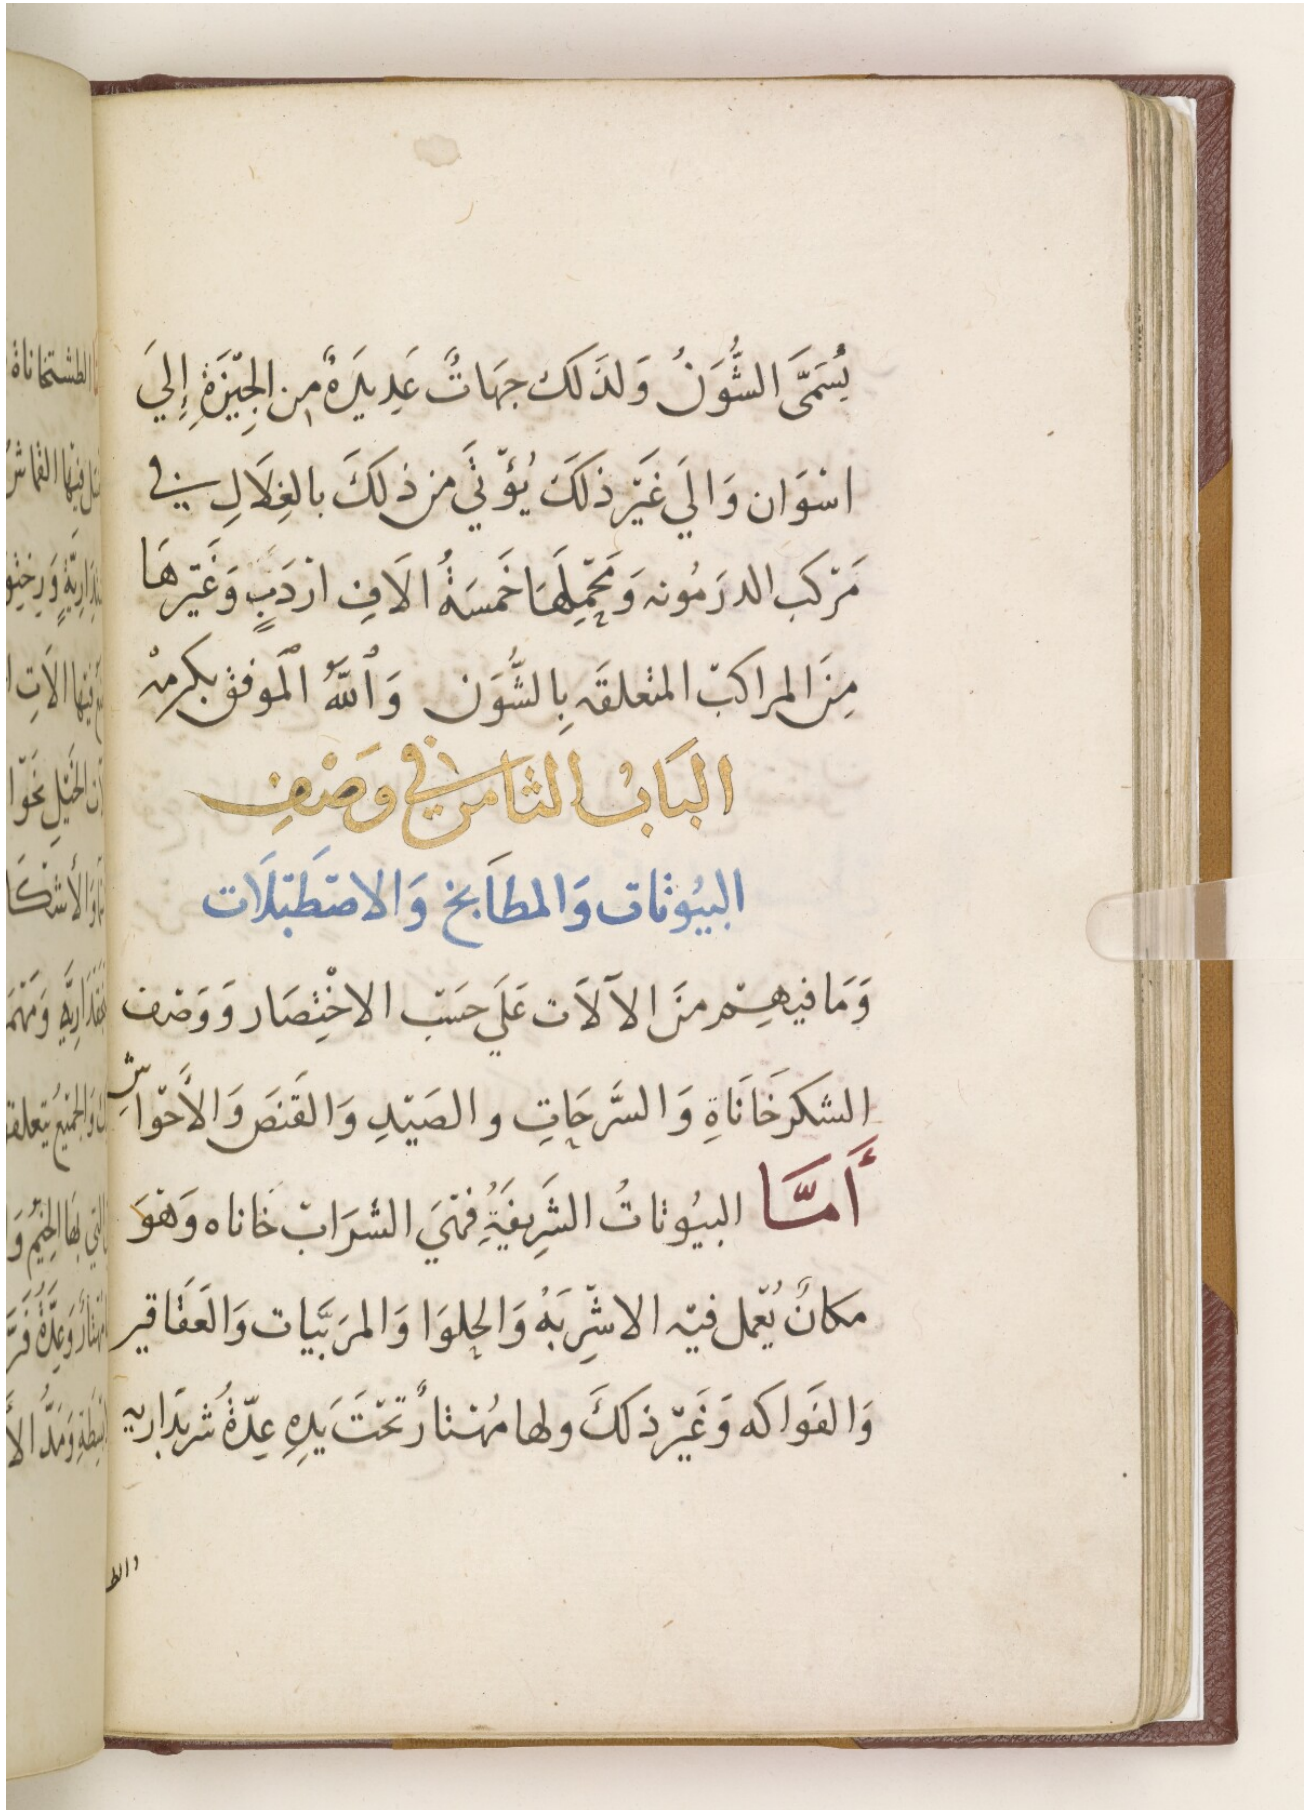 يُسَمَّى الشُّوَنُ وَلذَلك جهَاتٌ عَدِيدَةٌ مِن الجِيْزَةِ إِليَ
اسْوَان وَالَي غَيْر ذلكَ يُؤْتَي من ذلكَ بالغِلَالِ في
مَرْكب الدرَمُونه وَمَحْمِلهَا خَمسَةُ الَافِ ارْدَبٍ وَغَيْرهَا
مِنَ المراكبْ المتعلقَه بِالشُّوَن وَاللَّهُ الموفق بكرمهْ
البَابُ الثامن في وَصْفِ
البيُوتات وَالمطَابخ وَالاصْطَبْلَات
وَمَا فيهِمْ منَ الآلَات عَلَي حَسَبْ الاخْتِصَار وَوَصْف
الشكرخَانَاةِ وَالسَّرحَاتِ والصَيْدِ وَالقَنصَ وَالأَحْوَاش
أَمَّا البيُوتاتُ الشَرِيفَةُ فهْيَ الشرَابْ خَاناه وَهْوَ
مكانٌ يُعْمل فيْه الاشْرِبَهُ وَالحلوَا وَالمرَبَّيات وَالعَقَاقير
وَالفَواكه وَغَيْر ذلكَ ولها مهْتارٌ تحْتَ يَدِهِ عِدّةُ شربَدَاريه
والط